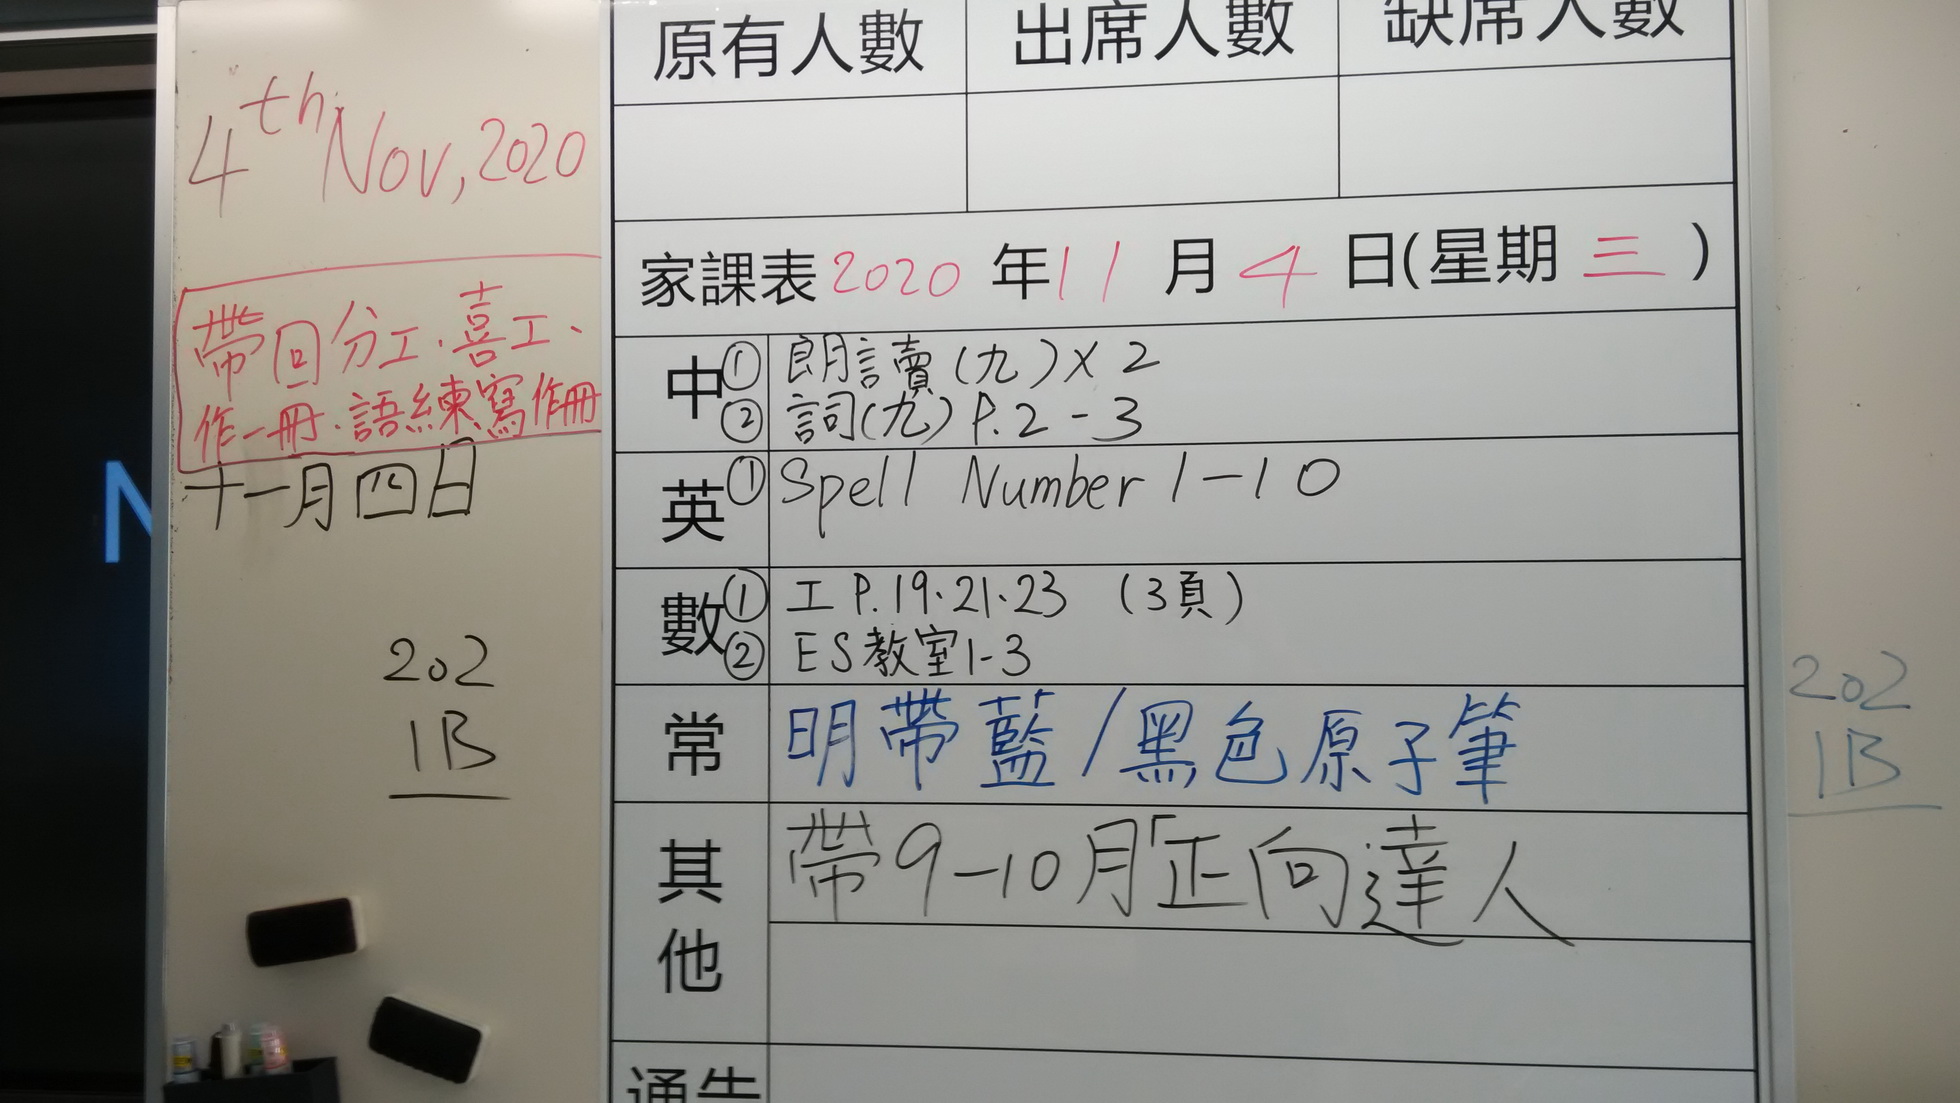 4th Nov, 2020
帶回分工.喜工、
作一冊.語練寫作冊
十一月四日
202
1B
N
原有人數 出席人數 缺席人數
家課表 2020 年 11 月 4 日(星期 三 )
中 ① 朗讀(九)X2
② 詞(九) P.2-3
英 ① Spell Number 1-10
數 ① 工 P.19.21.23 (3頁)
② ES教室1-3
常 明帶藍/黑色原子筆
其他 帶9-10月「正向達人
通告
202
1B